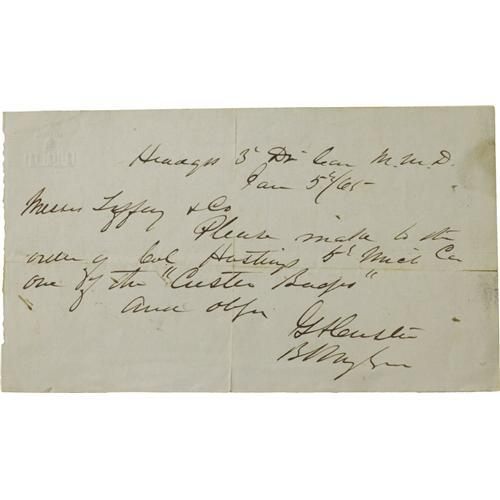 Headqrs 3d Div Cav M.M.D.
Jan 5th/65
Messrs Tiffany & Co
Please make to the
order of Col Hastings 5th Mich Ca
one of the "Custer Badges"
and oblige
G A Custer